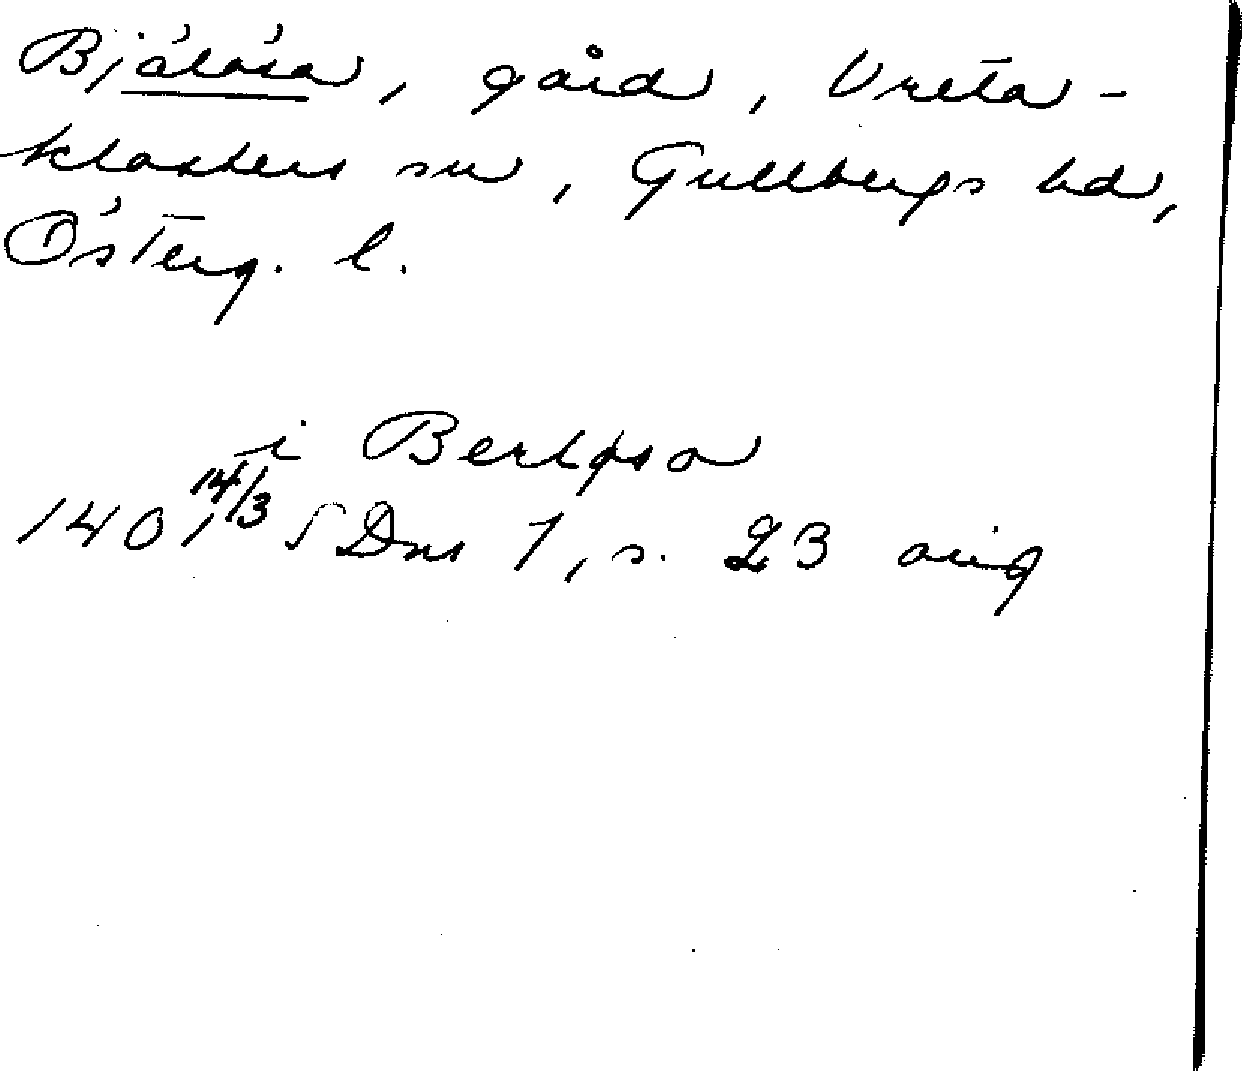 Bjälösa, gård, Vreta-
klosters sn, Gullbergs hd,
Österg. l.
i Berløsa
1401 14/3 SDns 1, s. 23 orig